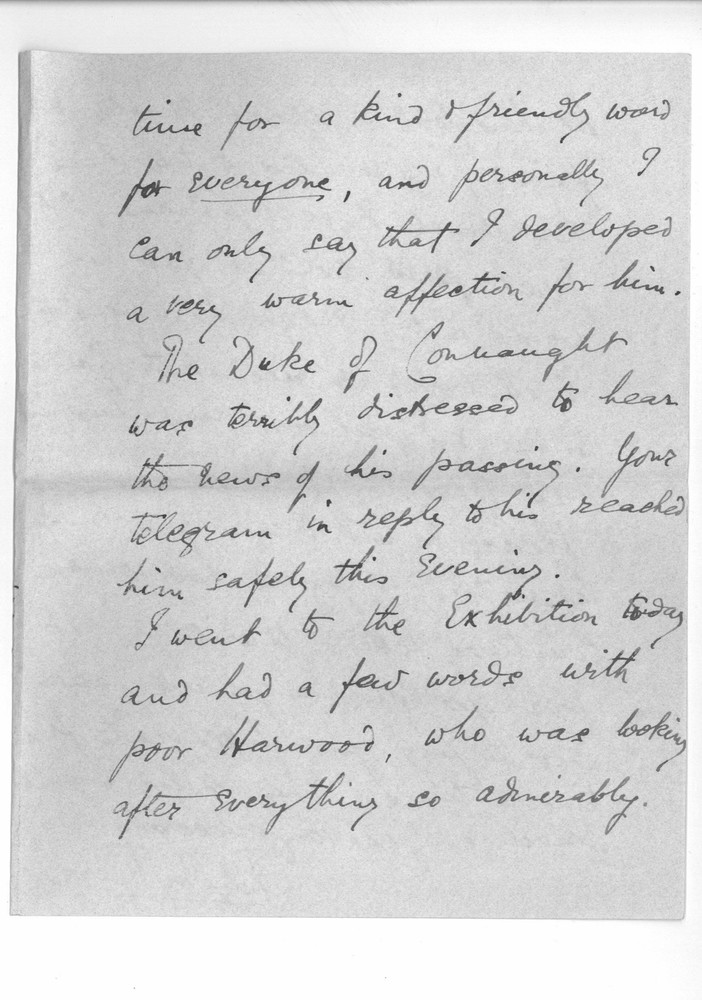 time for a kind & friendly word
for everyone, and personally I
can only say that I developed
a very warm affection for him.
The Duke of Connaught
was terribly distressed to hear
the news of his passing. Your
telegram in reply to his reached
him safely this Evening.
I went to the Exhibition today
and had a few words with
poor Harwood, who was looking
after Everything so admirably.